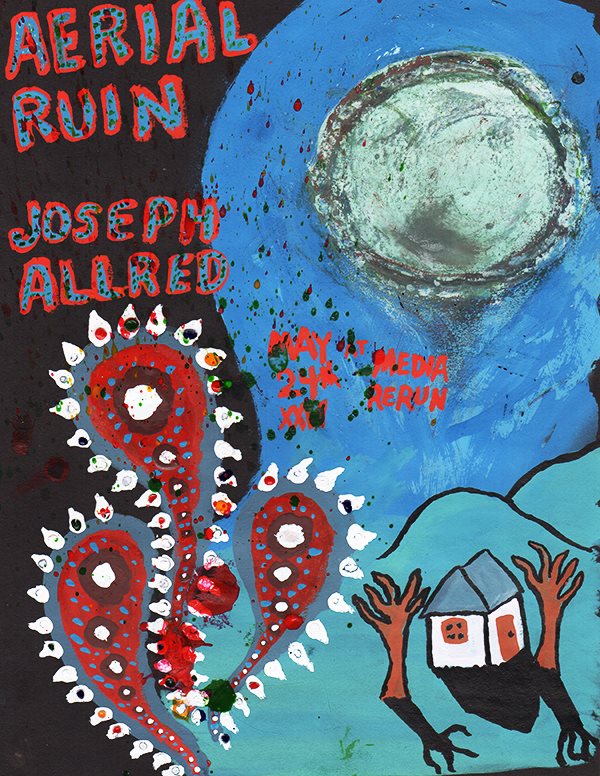 AERIAL
RUIN
JOSEPH
ALLRED
MAY
24th
AT
MEDIA
RERUN